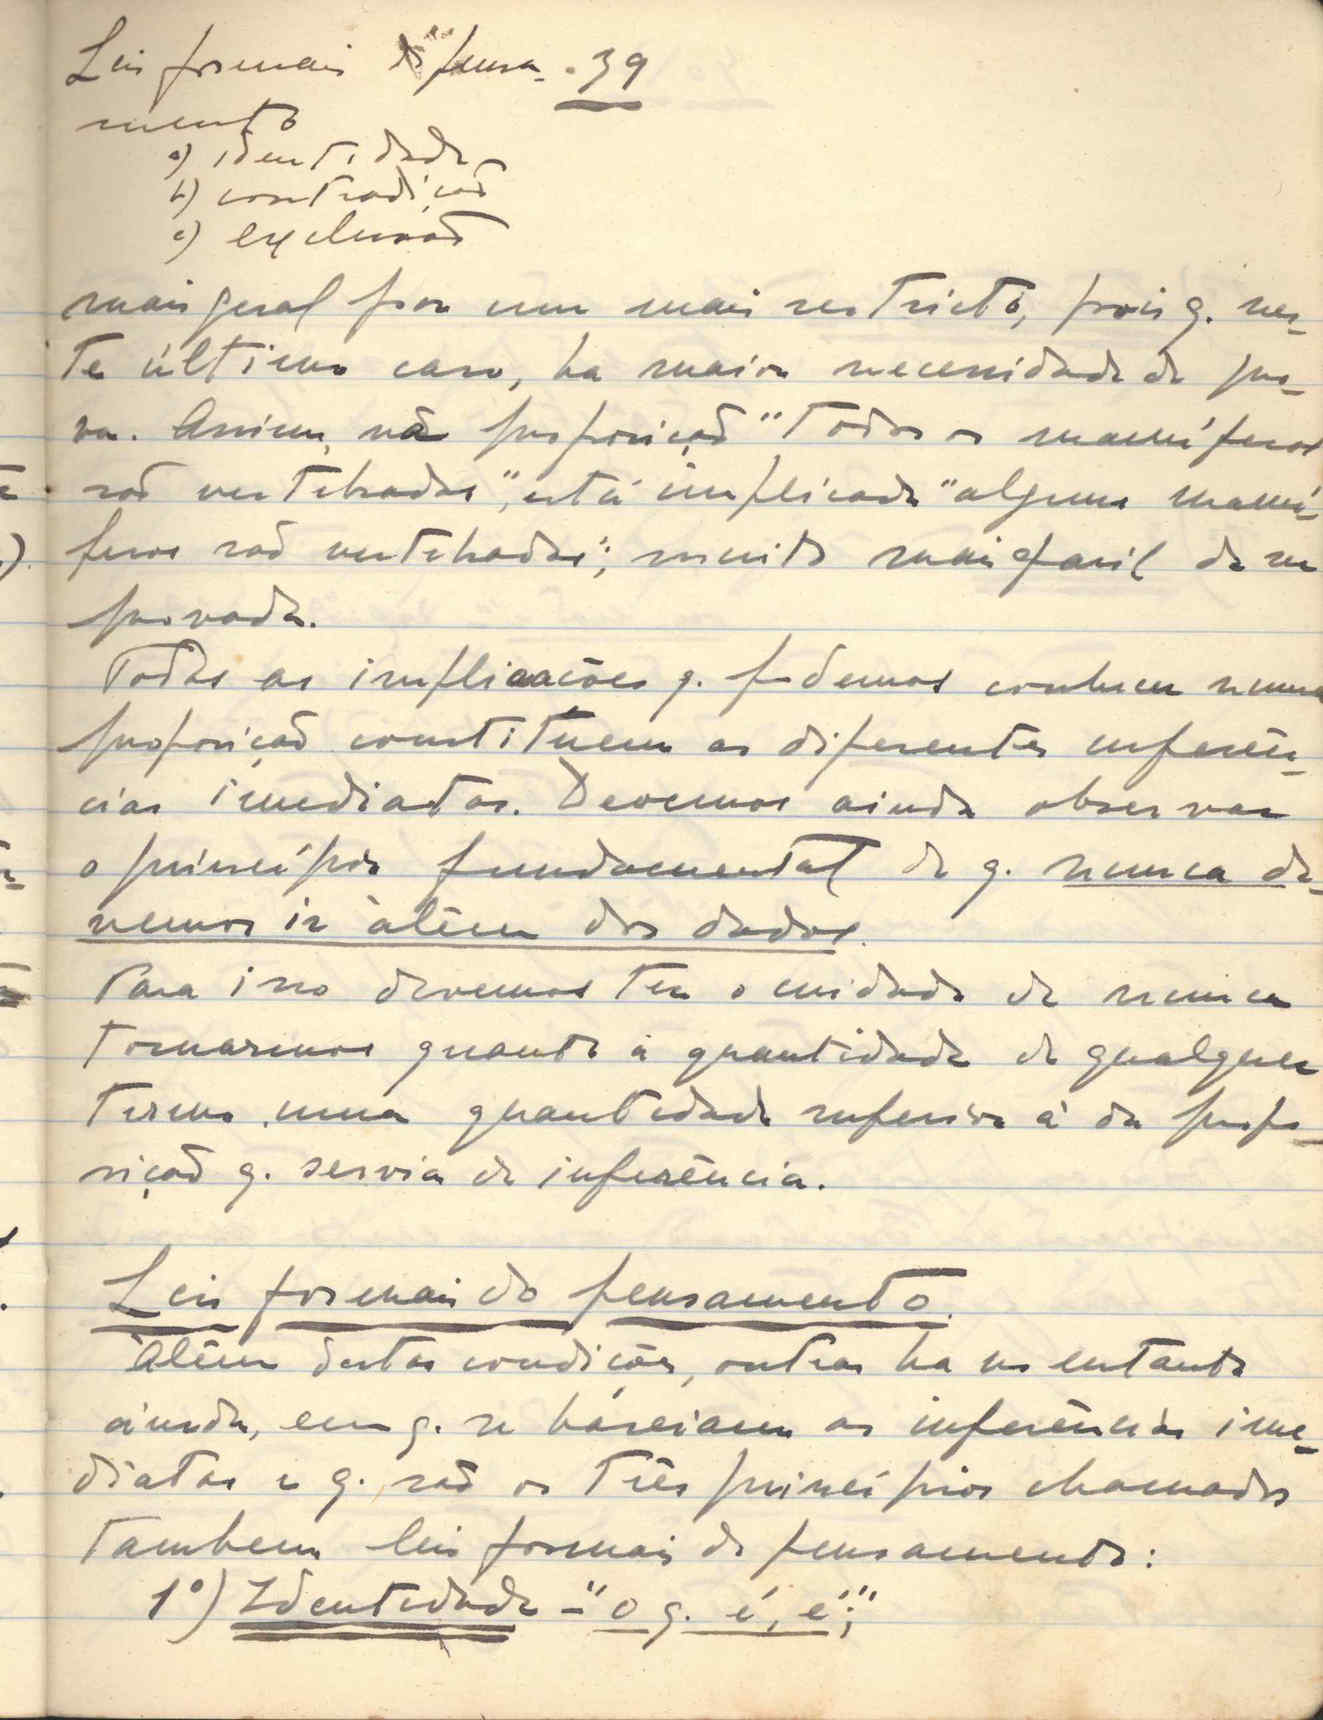 Leis formais do pensa- . 39
mento
a) identidade
b) contradição
c) exclusão
mais geral por um mais restricto, pois q. nes-
te último caso, ha maior necessidade de pro-
va. Assim, na proposição "Todos os mamíferos
são vertebrados", está implicada "alguns mamí-
feros são vertebrados"; muito mais facil de ser
provada.
Todas as implicações q. podemos conhecer numa
proposição constitúem as diferentes inferên-
cias imediatas. Devemos ainda observar
o princípio fundamental de q. nunca de-
vemos ir àlêm dos dados.
Para isso devemos ter o cuidado de nunca
tomarmos quanto á quantidade de qualquer
termo uma quantidade inferior á da propo-
sição q. servia de inferência.
Leis formais do pensamento.
Àlêm destas condições, outras ha no entanto
ainda, em q. se báseiam as inferências ime-
diatas e q. são os três princípios chamados
tambem leis formais do pensamento:
1º) Identidade - "o q. é, é";